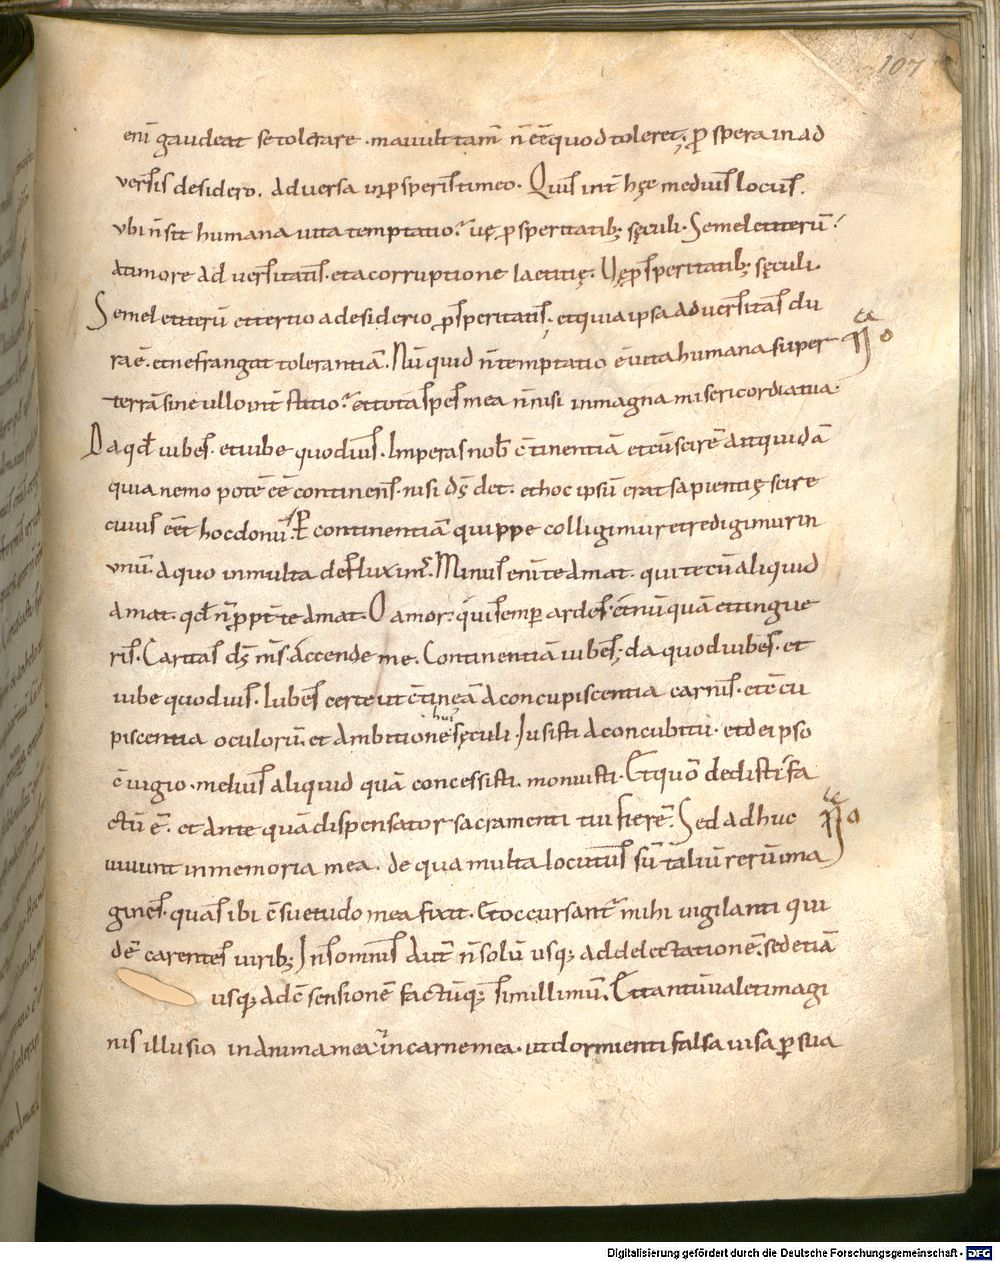 107
enī gaudeat se tolerare · mavult tam̄ n̄ eē quod toleret; p̄spera in ad
versis desidero. Adversa in p̄speris timeo. Quis int̄ hęc medius locus.
vbi n̄ sit humana vita temptatio? uę p̄speritatib; sęculi. Semel et iterū
a timore adversitatis. et a corruptione laetitię. Uę p̄speritatib; sęculi.
Semel et iterū et tertio a desiderio p̄speritatis; et quia ipsa adversitas du
ra ē. et ne frangat tolerantiā. Nūquid n̄ temptatio ē vita humana super
terrā sine ullo int̄stitio? et tota spes mea n̄ nisi in magna misericordia tua.
Da qd̄ iubes. et iube quod vis. Imperas nob̄ c̄tinentiā et cū scirē ait quidā
quia nemo potē eē continens. nisi d̄s det. et hoc ipsū erat sapientię scire
cuius eēt hoc donū. P continentiā quippe colligimur et redigimur in
vnū. a quo in multa defluxim;. Minus enī te amat. qui te cū aliquid
amat. qd̄ n̄ ppt̄ te amat. O amor. qui semp ardes. et nūquā extingue
ris. Caritas d̄s ms̄ accende me. Continentiā iubes; da quod iubes. et
iube quod vis. Iubes certe ut c̄tineā a concupiscentia carnis. et c̄cu
piscentia oculorū. et ambitione sęculi. Iussisti a concubitu. et de ipso
hui
c̄iugio. melius aliquid quā concessisti. monuisti. Et quō dedisti fa
ctū ē. et ante quā dispensator sacramenti tui fierē. Sed adhuc
vivunt in memoria mea. de qua multa locutus sū taliū rerū ima
gines. quas ibi c̄suetudo mea fixit. Et occursant̄ mihi vigilanti qui
dē carentes virib; In somnis aut̄ n̄ solū usq; ad delectationē. sed etiā
usq; ad c̄sensionē factūq; simillimū. Et tantū valet imagi
nis illusio in anima mea in carne mea. ut dormienti falsa visa p sua
Digitalisierung gefördert durch die Deutsche Forschungsgemeinschaft - DFG